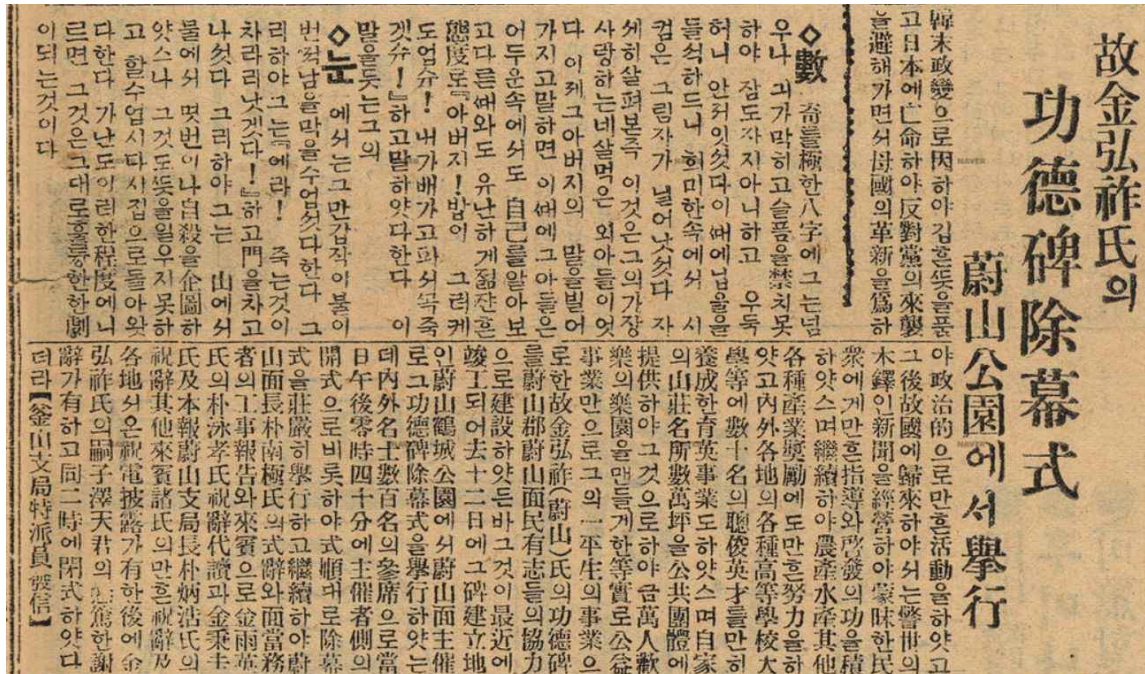 故金弘祚氏의
功德碑除幕式
蔚山公園에서擧行
韓末政變으로因하야깁흔뜻을품
고日本에亡命하야反對黨의來襲
을避해가면서母國의革新을爲하
야政治的으로만흔活動을하얏고
그後故國에歸來하야서는警世의
木鐸인新聞을經營하야蒙昧한民
衆에게만흔指導와啓發의功을積
하얏스며繼續하야農產水產其他
各種產業奬勵에도만흔努力을하
얏고內外各地의各種高等學校大
學等에數十名의聰俊英才를만히
養成한育英事業도하얏스며自家
의山莊名所數萬坪을公共團體에
提供하야그것으로하야금萬人歡
樂의樂園을맨들게한等實로公益
事業만으로그의一平生의事業으
로한故金弘祚(蔚山)氏의功德碑
를蔚山郡蔚山面民有志들의協力
으로建設하얏든바그것이最近에
竣工되어去十二日에그碑建立地
인蔚山鶴城公園에서蔚山面主催
로그功德碑除幕式을擧行하얏는
데內外名士數百名의參席으로當
日午後零時四十分에主催者側의
開式으로비롯하야式順대로除幕
式을莊嚴히擧行하고繼續하야蔚
山面長朴南極氏의式辭와面當務
者의工事報告와來賓으로金雨英
氏의朴泳孝氏祝辭代讀과金秉圭
氏及本報蔚山支局長朴炳浩氏의
祝辭其他來賓諸氏의만흔祝辭及
各地서온祝電披露가有한後에金
弘祚氏의嗣子澤天君의 한謝
辭가有하고同二時에閉式하얏다
더라【釜山支局特派員發信】
◇數 奇를極한八字에그는넘
우나 긔가막히고슬픔을禁치못
하야 잠도자지아니하고 우둑
허니 안저잇섯다이때에닙울을
들석하드니 희미한속에서 시
컴은 그림자가 닐어낫섯다 자
세히살펴본즉 이것은그의가장
사랑하는네살먹은 외아들이엇
다 이제그아버지의 말을빌어
가지고말하면 이때에그아들은
어두운속에서도 自己를알아보
고다른때와도 유난하게점잔흔
態度로『아버지!밥이 그러케
도업슈! 내가배가고파서죽
겟슈!』하고말하얏다한다 이
말을듯는그의
◇눈 에서는그만갑작이불이
번쩍남을막을수업섯다한다 그
리하야그는『에라! 죽는것이
차라리낫겟다!』하고門을차고
나섯다 그리하야그는 山에서
물에서 몃번이나自殺을企圖하
얏스나 그것도뜻을일우지못하
고 할수업시다시집으로돌아왓
다한다 가난도이러한程度에니
르면 그것은그대로훌륭한한劇
이되는것이다